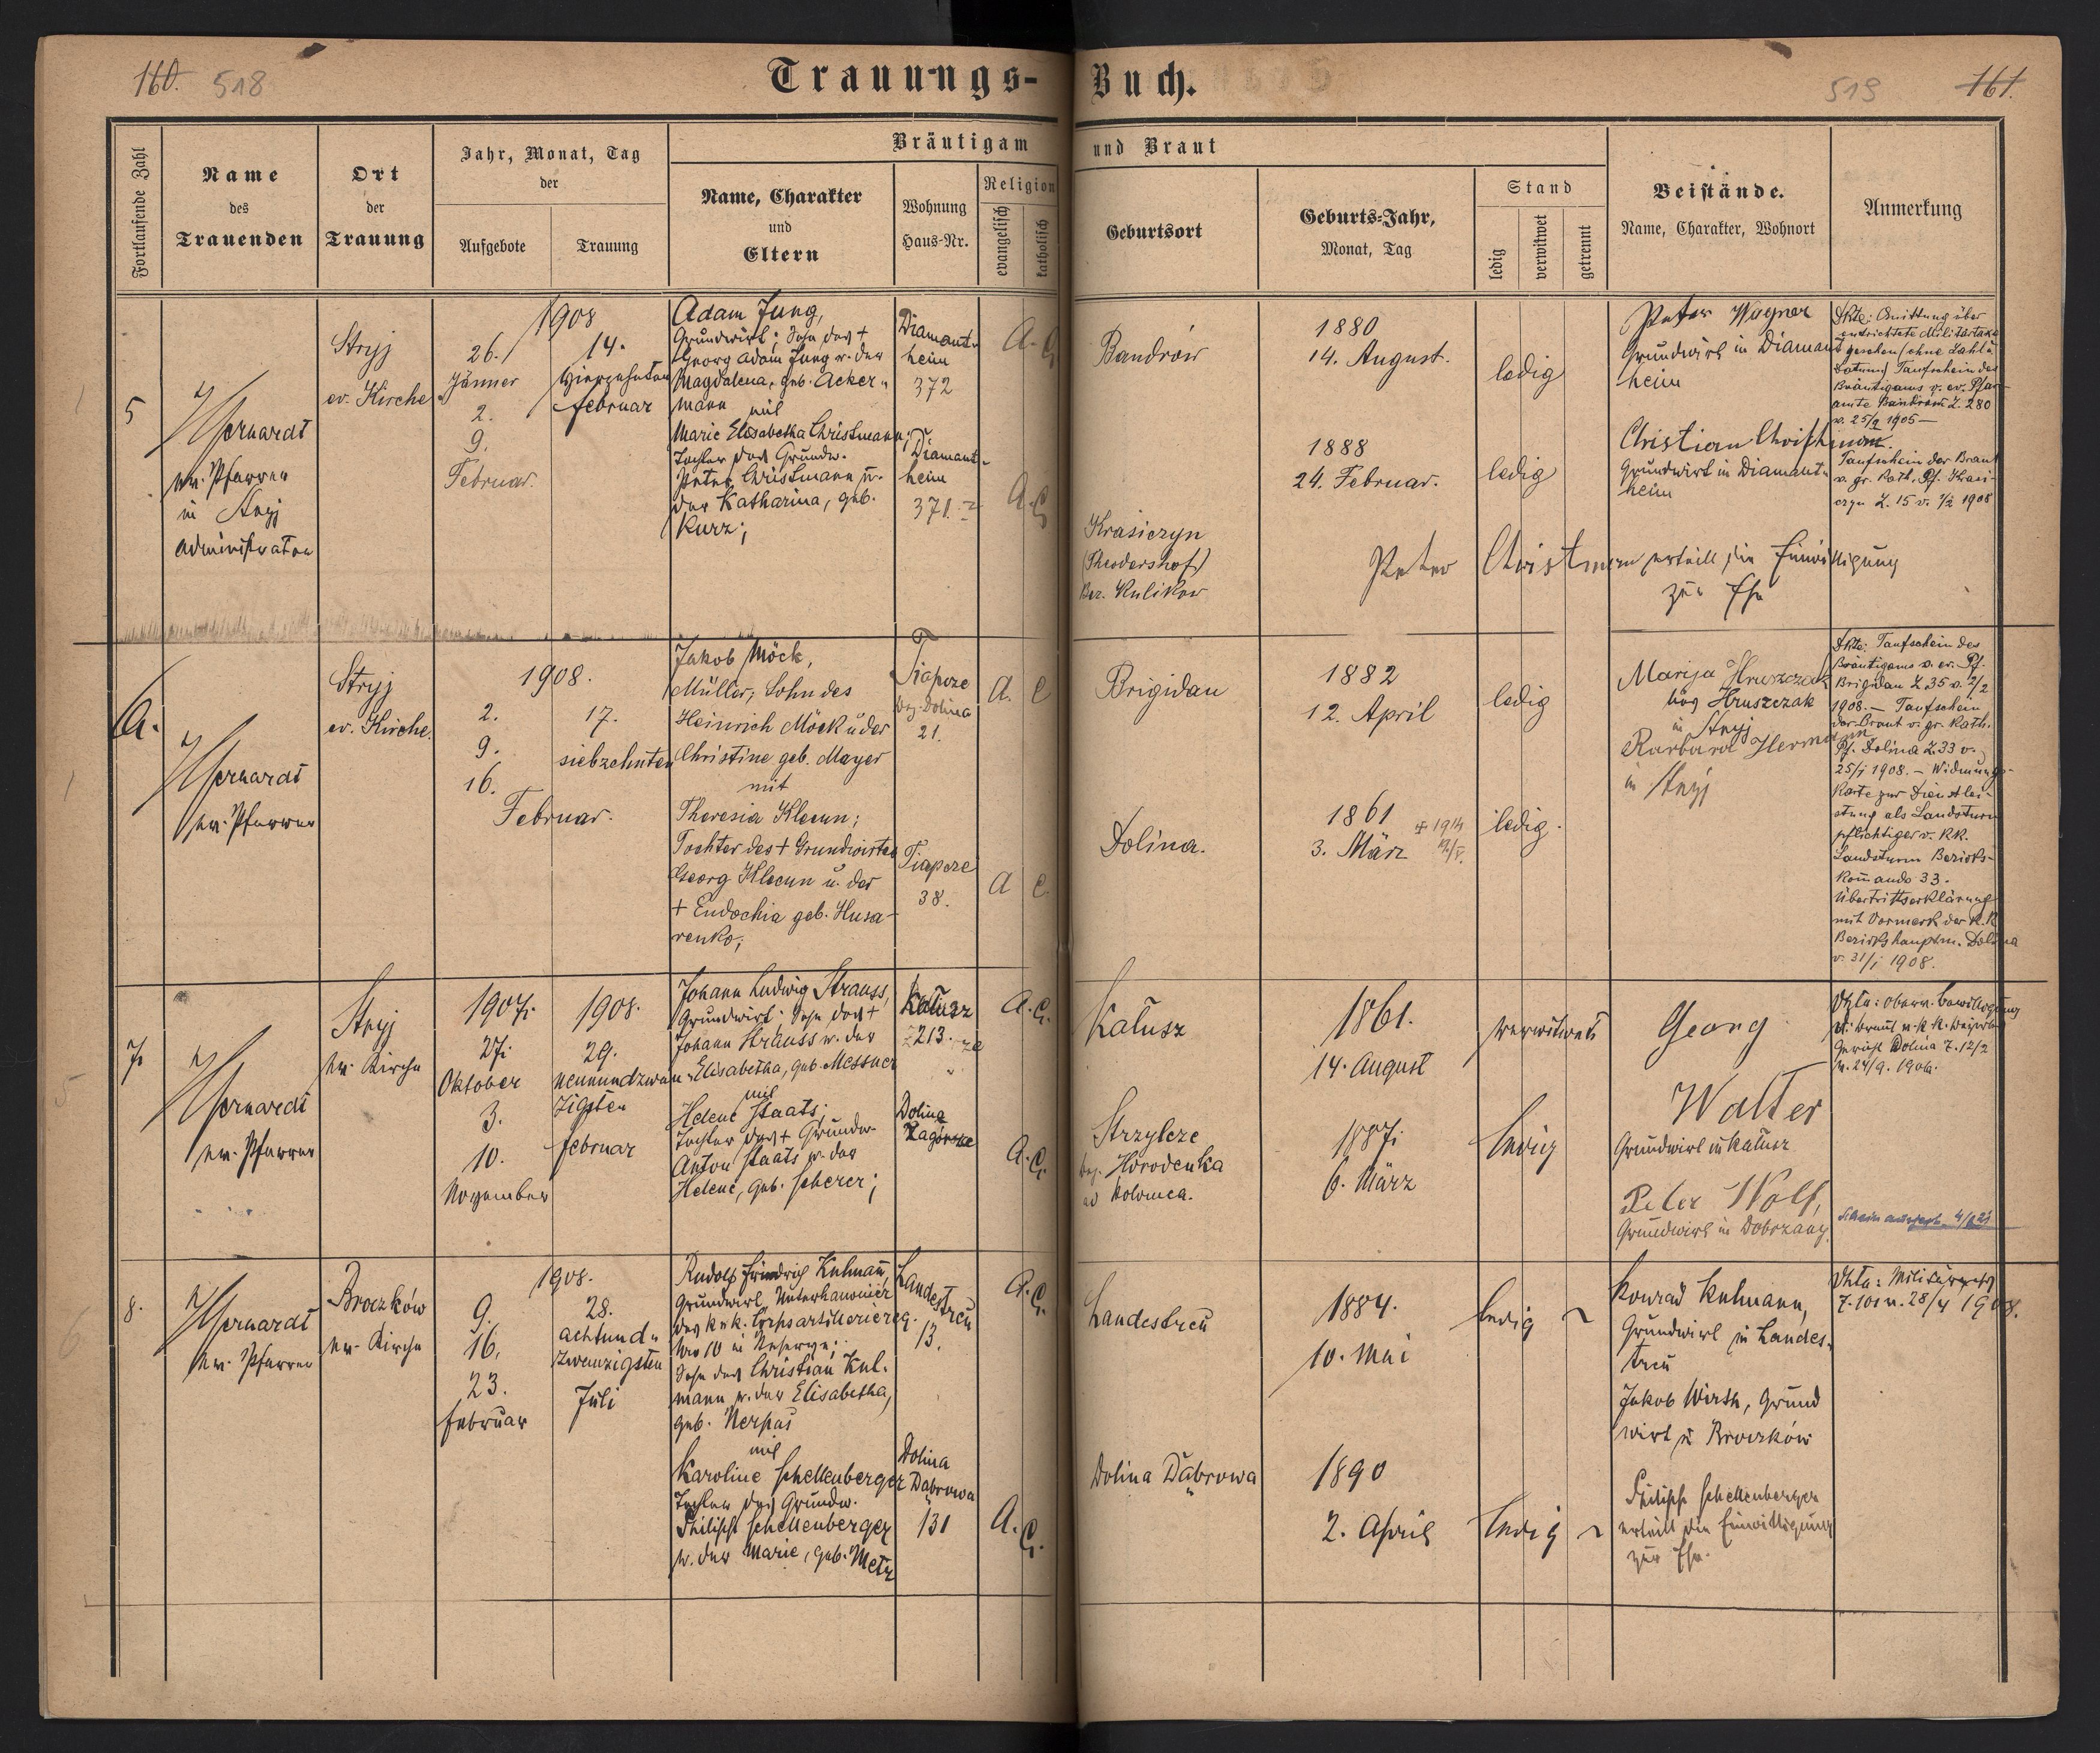 160. 518
Trauungs-Buch.
519 161.
Fortlaufende Zahl
Name
des
Trauenden
Ort
der
Trauung
Jahr, Monat, Tag
der
Aufgebote
Trauung
Bräutigam und Braut
Name, Charakter
und
Eltern
Wohnung
Haus-Nr.
Religion
evangelisch
katholisch
Geburtsort
Geburts-Jahr,
Monat, Tag
Stand
ledig
verwitwet
getrennt
Beistände.
Name, Charakter, Wohnort
Anmerkung
5
ev. Pfarrer
in Stryj
Administrator
Stryj
ev. Kirche
1908
26.
Jänner
2.
9.
Februar.
14.
vierzehnten
Februar
Adam Jung,
Grundwirt; Sohn des +
Georg Adam Jung u. der
Magdalena, geb. Acker-
mann
mit
Marie Elisabetha Christmann;
Tochter des Grundw.
Peter Christmann u.
der Katharina, geb.
Kurz;
Diamant-
heim
372
Diamant-
heim
371.
A. C.
A. C.
Bandrów
Krasiczyn
(Theodershof)
Bez. Kulikow
1880
14. August.
1888
24. Februar.
ledig
ledig
Peter Wagner
Grundwirt in Diamant-
heim
Christian Christmann
Grundwirt in Diamant-
heim
Peter Christmann erteilt die Einwilligung
zur Ehe
Dkte: Quittung über
entrichtete Militärtaxe
gesehen (ohne Zahl u.
Datum) Taufschein des
Bräutigams v. ev. Pfar-
amte Bandrów Z. 280
v. 25/9 1905 —
Taufschein der Braut
v. gr. kath. Pf. Krasi-
czyn Z. 15 v. 1/2 1908
6.
ev. Pfarrer
Stryj
ev. Kirche.
1908.
2.
9.
16.
Februar.
17.
siebzehnten
Jakob Möck,
Müller, Sohn des
Heinrich Möck u. der
Christine geb. Mayer
mit
Theresia Klecun;
Tochter des + Grundwirtes
Georg Klecun u. der
+ Eudochia geb. Husa-
renko;
Tiapcze
Bez. Dolina
21.
Tiapcze
38.
A. C
A C.
Brigidau
Dolina.
1882
12. April
1861
3. März
+ 1914
ledig
ledig.
Marija Hruszczak
Hruszczak
in Stryj
Barbara Hermann
in Stryj
Dkte: Taufschein des
Bräutigams v. ev. Pf.
Brigidau Z. 35 v. 2/2
1908. — Taufschein
der Braut v. gr. kath.
Pf. Dolina Z. 33 v.
25/1 1908. — Widmungs-
karte zur Dienstlei-
stung als Landsturm
pflichtiger v. KK.
Landsturm Bezirks-
kommando 33.
Übertrittserklärung
mit Vormerk der K.K.
Bezirkshauptm. Dolina
v. 31/1 1908.
7.
ev. Pfarrer
Stryj
ev. Kirche
1907.
27.
Oktober
3.
10.
November
1908.
29.
neunundzwan-
zigsten
Februar
Johann Ludwig Strauss,
Grundwirt: Sohn des +
Johann Strauss u. der
Elisabetha, geb. Messner
mit
Helene Staats;
Tochter des + Grundw.
Anton Staats u. der
Helene, geb. Scherer;
Kałusz
213.
Dolina
Zagórze
A. C.
A. C.
Kałusz
Strzylcze
Bez. Horodenka
Kolomea.
1861.
14. August
1887.
6. März
verwitwet
ledig
Georg
Walter
Grundwirt in Kałusz
Peter Wolf,
Grundwirt in Dobrzany.
Dkte: oberv. Bewilligung
Gericht Dolina
v. 24/9. 1906.
8.
ev. Pfarrer
Broczków
ev. Kirche
1908.
9.
16.
23.
Februar
28.
achtund-
zwanzigsten
Juli
Rudolf Friedrich Kulmann,
Grundwirt, Unterkanonier
des k.u.k. Corpsartilleriereg.
Nro 10 in Reserve;
Sohn des Christian Kul-
mann u. der Elisabetha,
geb. Nerpas
mit
Karoline Schellenberger
Tochter des Grundw.
Philipp Schellenberger
u. der Marie, geb. Metz
Landestreu
13.
Dolina
Dąbrowa
131
A. C.
A. C.
Landestreu
Dolina Dąbrowa
1884.
10. Mai
1890
2. April
ledig
ledig
Konrad Kulmann,
Grundwirt in Landes-
treu
Jakob Wirth, Grund
wirt in Broczków
Philipp Schellenberger
erteilt die Einwilligung
zur Ehe.